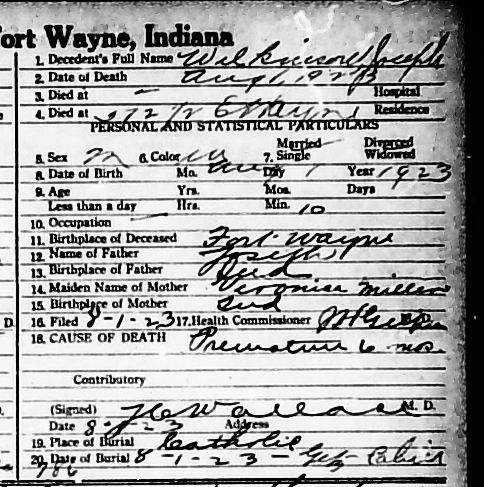 ort Wayne, Indiana
1. Decedent's Full Name Wilkinson Joseph
2. Date of Death Aug 1, 1923
3. Died at Hospital
4. Died at Residence
PERSONAL AND STATISTICAL PARTICULARS
5. Sex M 6. Color W 7. Married Single Divorced Widowed
8. Date of Birth Mo. Aug Day 1 Year 1923
9. Age Yrs. Mos. Days
Less than a day Hrs. Min. 10
10. Occupation
11. Birthplace of Deceased Fort Wayne
12. Name of Father Joseph
13. Birthplace of Father Ind
14. Maiden Name of Mother Veronica Miller
15. Birthplace of Mother Ind
16. Filed 8-1-23 17. Health Commissioner M.D.
18. CAUSE OF DEATH Premature 6 mos.
Contributory
(Signed) Wallace M. D.
Date 8-1-23 Address
19. Place of Burial Catholic
20. Date of Burial 8-1-23 - Getz
786